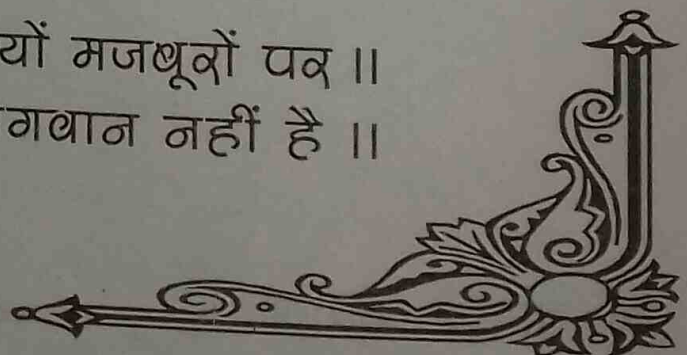 यों मजबूरों पर ॥
गवान नहीं है ॥